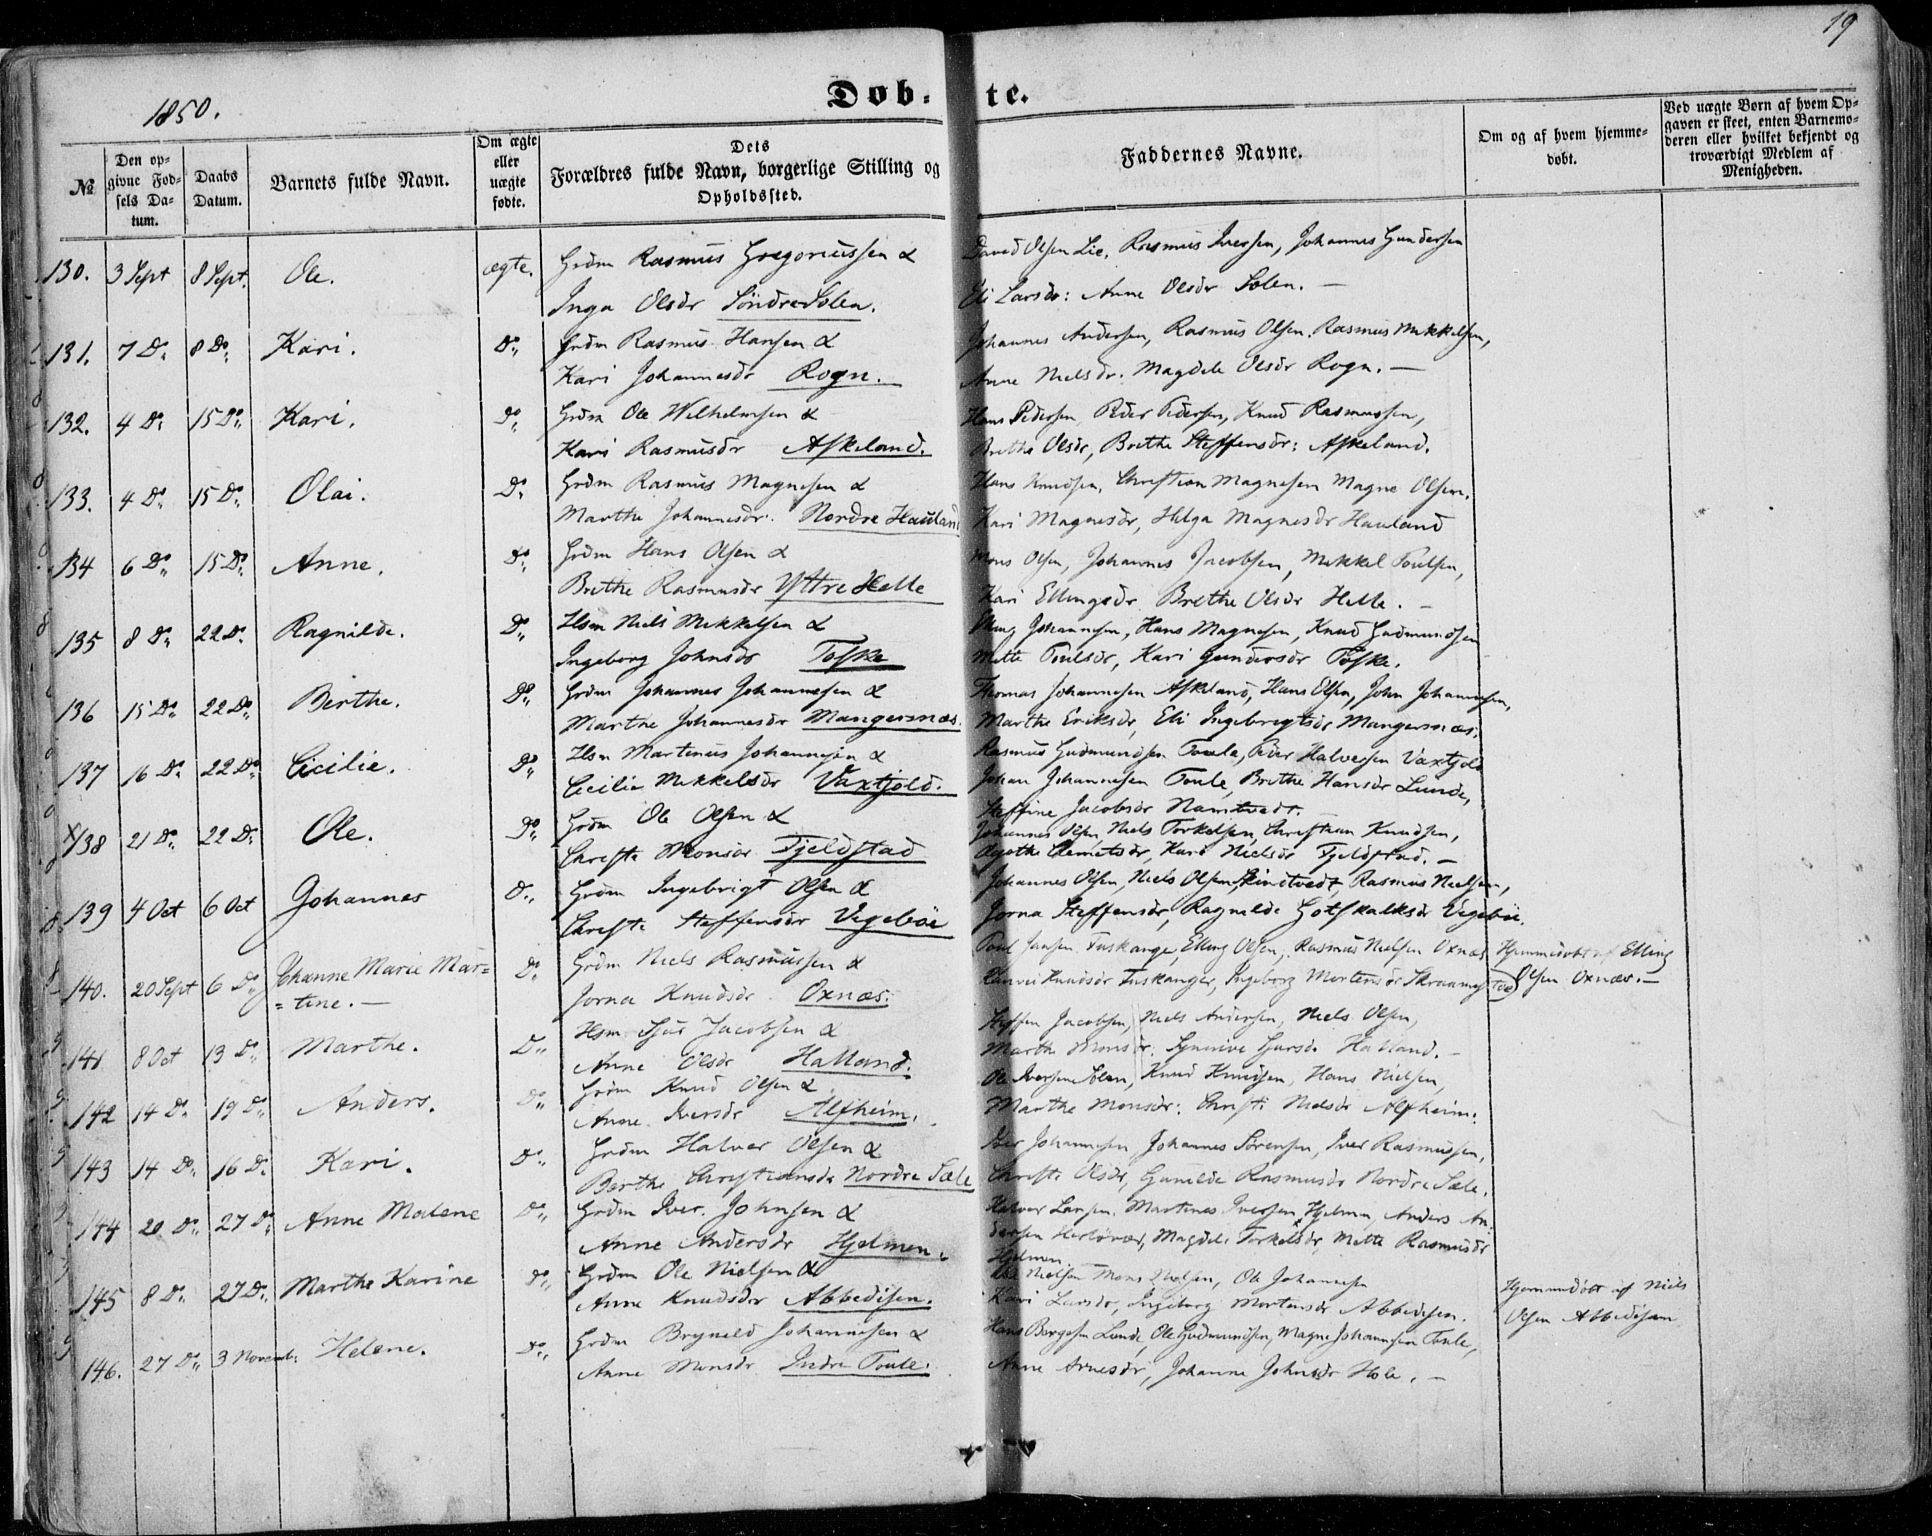 19
1850.
Døb- te.
№
Den opgivne Fødsels Datum.
Daabs Datum.
Barnets fulde Navn.
Om ægte eller uægte fødte.
Dets Forældres fulde Navn, borgerlige Stilling og Opholdssted.
Faddernes Navne.
Om og af hvem hjemmedøbt.
Ved uægte Børn af hvem Opgaven er skeet, enten Barnemoderen eller hvilket bekjendt og troværdigt Medlem af Menigheden.
130. 3 Sept 8 Sept. Ole. ægte. Grdm Rasmus Gregoriussen & David Olsen Lie, Rasmus Iversen, Johannes Gundersen
Inga Olsdr Söndre Solen. Eli Larsdr: Anne Olsdr Solen. —
131. 7 Do 8 Do. Kari. Do Grdm Rasmus Hansen & Johannes Andersen, Rasmus Olsen. Rasmus Mikkelsen,
Kari Johannesdr Rogn. Anne Nielsdr. Magdele Olsdr Rogn. —
132. 4 Do 15 Do. Kari. Do Grdm Ole Wilhelmsen & Hans Pedersen, Peder Pedersen, Knud Rasmussen,
Kari Rasmusdr Askeland. Brethe Olsdr, Brethe Steffensdr: Askeland.
133. 4 Do 15 Do. Olai. Do Grdm Rasmus Magnesen & Hans Knudsen. Christian Magnesen Magne Olsen.
Marthe Johannesdr. Nordre Hauland Kari Magnesdr, Helga Magnesdr Hauland
134 6 Do 15 Do. Anne. Do Grdm Hans Olsen & Mons Olsen, Johannes Jacobsen, Mikkel Poulsen,
Brethe Rasmusdr Yttre Helle Kari Ellingsdr. Brethe Olsdr Helle. —
135 8 Do 22 Do. Ragnilde. Do Hsm Niels Mikkelsen & Elling Johannesen, Hans Magnesen, Knud Gudmundsen
Ingeborg Johnsdr Toske Mette Poulsdr, Kari Gundersdr Toske.
136 15 Do 22 Do Berthe. Do Grdm Johannes Johannesen & Thomas Johannesen Askeland, Hans Olsen, John Johannesen,
Marthe Johannesdr Mangersnæs. Marthe Eriksdr, Eli Ingebrigtsdr Mangersnæs.
137 16 Do 22 Do Cicilie. Do Hsm Martinus Johannesen & Rasmus Gudmundsen Toule, Peder Halvorsen Vaxtjold
Cecilie Mikkelsdr Vaxtjold. Johan Johannesen Toule, Brethe Hansdr Lunde,
Steffine Jacobsdr Namtvedt.
138 21 Do 22 Do Ole. Do Grdm Ole Olsen & Johannes Olsen, Niels Torkelsen, Christian Knudsen,
Christi Monsdr Fjeldstad Agothe Clemetsdr, Kari Nielsdr Fjeldstad. —
139 4 Oct 6 Oct Johannes Do Grdm Ingebrigt Olsen & Johannes Olsen, Niels Olsen, Rasmus Nielsen,
Christi Steffensdr Vegeböe Jorna Steffensdr, Ragnilde Gotskalksdr Vegeböe.
140. 20 Sept 6 Do Johanne Marie Mar= Do Grdm Niels Rasmussen & Elling Olsen, Rasmus Nielsen Oxnæs Hjemmedöbt af Elling
=tine. — Jorna Knudsdr Oxnæs. Knudsdr Tuskanger, Ingeborg Mortensdr Olsen Oxnæs. —
141 8 Oct 13 Do. Marthe. Do Hsm Sjur Jacobsen & Steffen Jacobsen, Niels Andersen, Niels Olsen,
Anne Olsdr Halland. Marthe Monsdr. Synnive Halland. —
142 14 Do 19 Do Anders. Do Grdm Knud Olsen & Ole Iversen Solen, Knud Knudsen, Hans Nielsen,
Anne Iversdr Alfheim. Marthe Monsdr. Christi Nielsdr Alfheim.
143 14 Do 16 Do. Kari. Do Grdm Halver Olsen & Johannesen Johannes Sörensen, Iver Rasmussen,
Berthe Christiansdr Nordre Sæle Christi Olsdr, Gunilde Rasmusdr Nordre Sæle.
144 20 Do 27 Do Anne Malene Do Grdm Iver Johnsen & Halver Larsen. Martines Iversen Hjelmen, Anders An
Anne Andersdr Hjelmen. dersen Herlövær, Magdele Torkelsdr Mette Rasmusdr
Hjelmen
145 8 Do 27 Do. Marthe Karine Do Grdm Ole Nielsen & Nielsen Mons Nielsen, Ole Johannesen Hjemmedöbt af Niels
Anne Knudsdr Abbedisen. Kari Larsdr, Ingeborg Mortensdr Abbedisen. Olsen Abbedisen
146. 27 Do 3 Novemb: Helene. Do Grdm Bryneld Johannesen & Hans Börgesen Lunde, Ole Gudmundsen, Magne Johannesen Toule,
Anne Monsdr Indre Toule. Anne Arnesdr, Johanna Johnsdr Hole. —